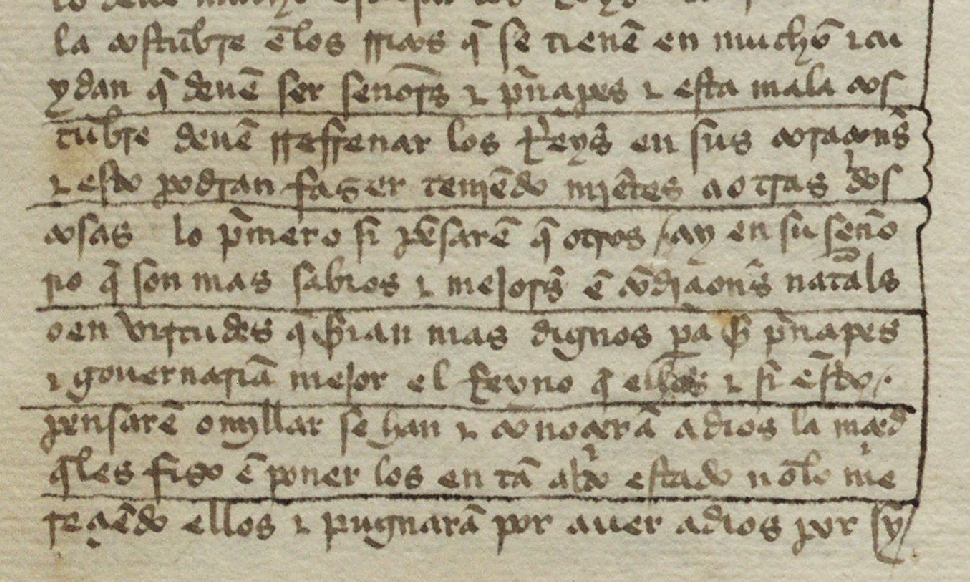 la costũbre ẽ los rricos q̃ se tienẽ en muchõ ⁊ cu
ydan q̃ deuẽ ser señor̃s ⁊ pñçipes ⁊ esta mala cos
tũbre deuẽ rrefrenar los Reyẽs en sus coraçonẽs
⁊ esto podrian faser teniẽdo miẽtes a otras dos
cosas lo p̃mero si pẽsarẽ q̃ otros ay en su seño
rio q̃ son mas sabios ⁊ mejor̃s ẽ cõdiçionẽs natãls
o en virtudes q̃ s̃ian mas dignos pa s̃ pñçipes
⁊ gouernariã mejor el Reyno q̃ ellos ⁊ si ẽsto
pensarẽ omyllar se han ⁊ conoçerã a dios la mr̃çed
q̃ les fiso ẽ poner los en tã alto estado nõ lo me
reçiẽdo ellos ⁊ pugnarã por auer a dios por sy